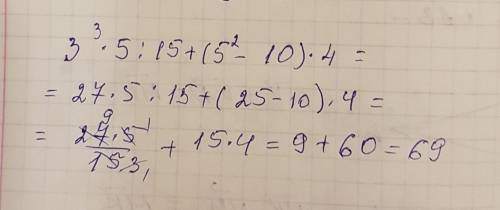 3³·5:15+(5²-10)·4=
=27·5:15+(25-10)·4=
= 9 27·5 1 / 15 3 1 + 15·4=9+60=69